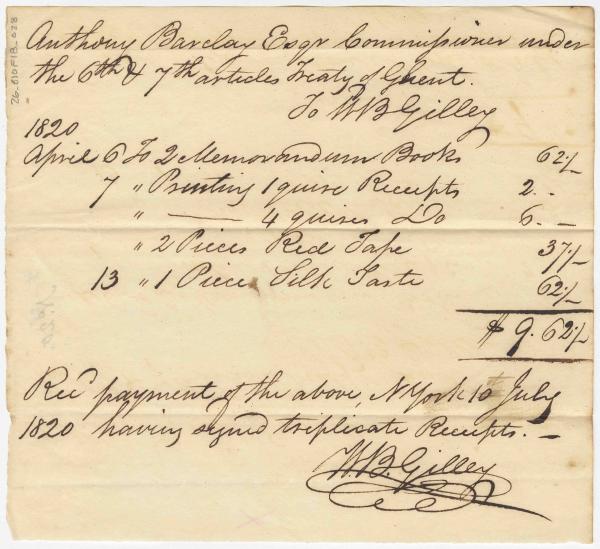 Anthony Barclay Esqr Commissioner under
the 6th & 7th articles Treaty of Ghent.
To W B Gilley
1820
April 6 To 2 Memorandum Books 62½
7 " Printing 1 quire Receipts 2. -
" — 4 quires Do 6. -
" 2 Pieces Red Tape 37½
13 " 1 Piece Silk Taste 62½
$ 9.62½
Recd payment of the above, N York 10th July
1820 having signed triplicate Receipts. —
W.B. Gilley